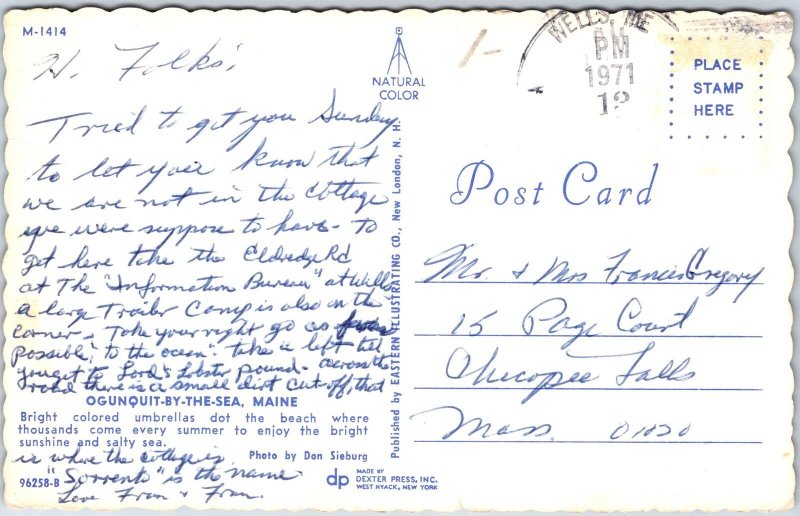 M-1414
Hi Folks:
Tried to get you Sunday
to let youse know that
we are not in the Cottage
we were suppose to have - to
get here take the Eldredge Rd
at The "Information Bureau" at Wells
a large Trailer Camp is also on the
corner. Take your right go as far as
possible, to the ocean. take a left till
you get to Lord's lobster pound - across the
road there is a small dirt cut-off, that
OGUNQUIT-BY-THE-SEA, MAINE
Bright colored umbrellas dot the beach where
thousands come every summer to enjoy the bright
sunshine and salty sea.
Photo by Don Sieburg
is where the cottage is.
"Sorrento" is the name.
96258-B
Love Fran & Fran.
NATURAL
COLOR
Published by EASTERN ILLUSTRATING CO., New London, N. H.
dp
MADE BY
DEXTER PRESS, INC.
WEST NYACK, NEW YORK
1-
WELLS, ME
PM
1971
12
PLACE
STAMP
HERE
Post Card
Mr. & Mrs Francis Gregory
15 Page Court
Chicopee Falls
Mass. 01020